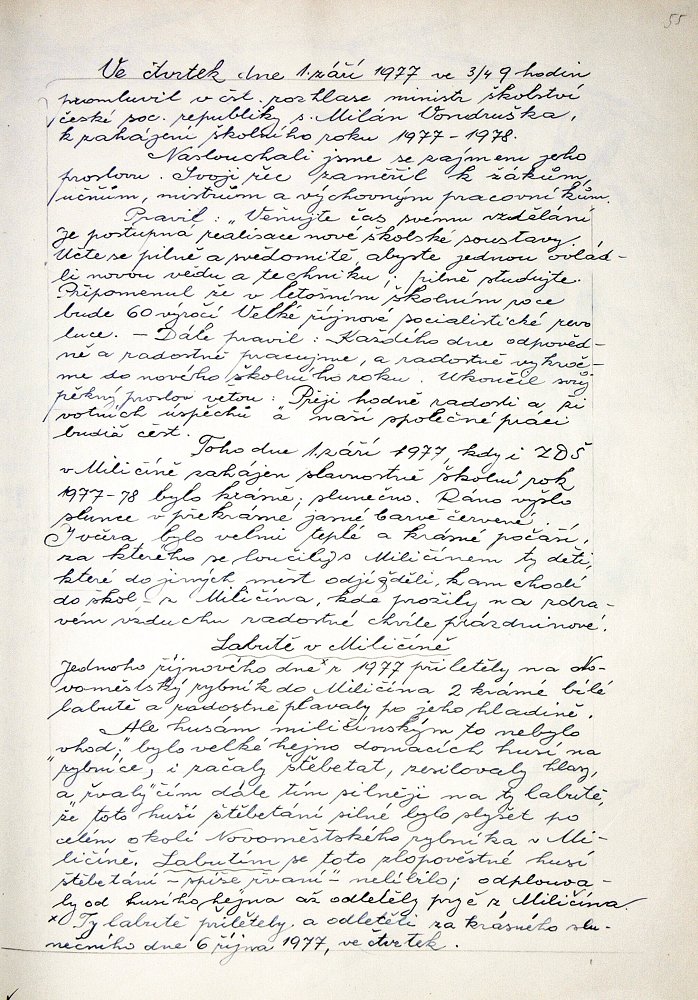 55
Ve čtvrtek dne 1. září 1977 ve 3/4 9 hodin
promluvil v čst. rozhlase ministr školství
české soc. republiky s. Milán Vondruška,
k zahájení školního roku 1977-1978.
Naslouchali jsme se zájmem jeho
proslovu. Svoji řeč zaměřil k žákům,
učňům, mistrům a výchovným pracovníkům.
Pravil: „Věnujte čas svému vzdělání
Je postupná realisace nové školské soustavy.
Učte se pilně a svědomitě, abyste jednou ovlád-
li novou vědu a techniku; pilně studujte.
Připomenul že v letošním školním roce
bude 60 výročí Velké říjnové socialistické revo
luce. – Dále pravil: Každého dne odpověd-
ně a radostně pracujme, a radostně vykroč-
me do nového školního roku. Ukončil svůj
pěkný proslov větou: Přeji hodně radosti a ži
votních úspěchů a naší společné práci
budiž čest.
Toho dne 1. září 1977, kdy i ZDŠ
v Miličíně zahájen slavnostně školní rok
1977-78 bylo krásně, slunečno. Ráno vyšlo
slunce v překrásné jasné barvě červené.
I včera bylo velmi teplé a krásné počasí,
za kterého se loučily s Miličínem ty děti,
které do jiných měst odjížděli, kam chodí
do škol – z Miličína, kde prožily na zdra-
vém vzduchu radostné chvíle prázdninové.
Labutě v Miličíně
Jednoho říjnového dne x r 1977 přiletěly na No-
voměstský rybník do Miličína 2 krásné bílé
labutě a radostně plavaly po jeho hladině.
Ale husám miličínským to nebylo
vhod; bylo velké hejno domacích husí na
rybníce, i začaly štěbetat, zesilovaly hlasy,
a „řvaly" čím dále tím silněji na ty labutě,
že toto husí štěbetání silně bylo slyšet po
celém okolí Novoměstského rybníka v Mi-
ličíně. Labutím se toto zlopověstné husí
štěbetání – spíše „řvaní" – nelíbilo; odplouva-
ly od husího hejna až odletěly pryč z Miličína.
x Ty labutě přiletěly a odletěli za krásného slu-
nečního dne 6 října 1977, ve čtvrtek.